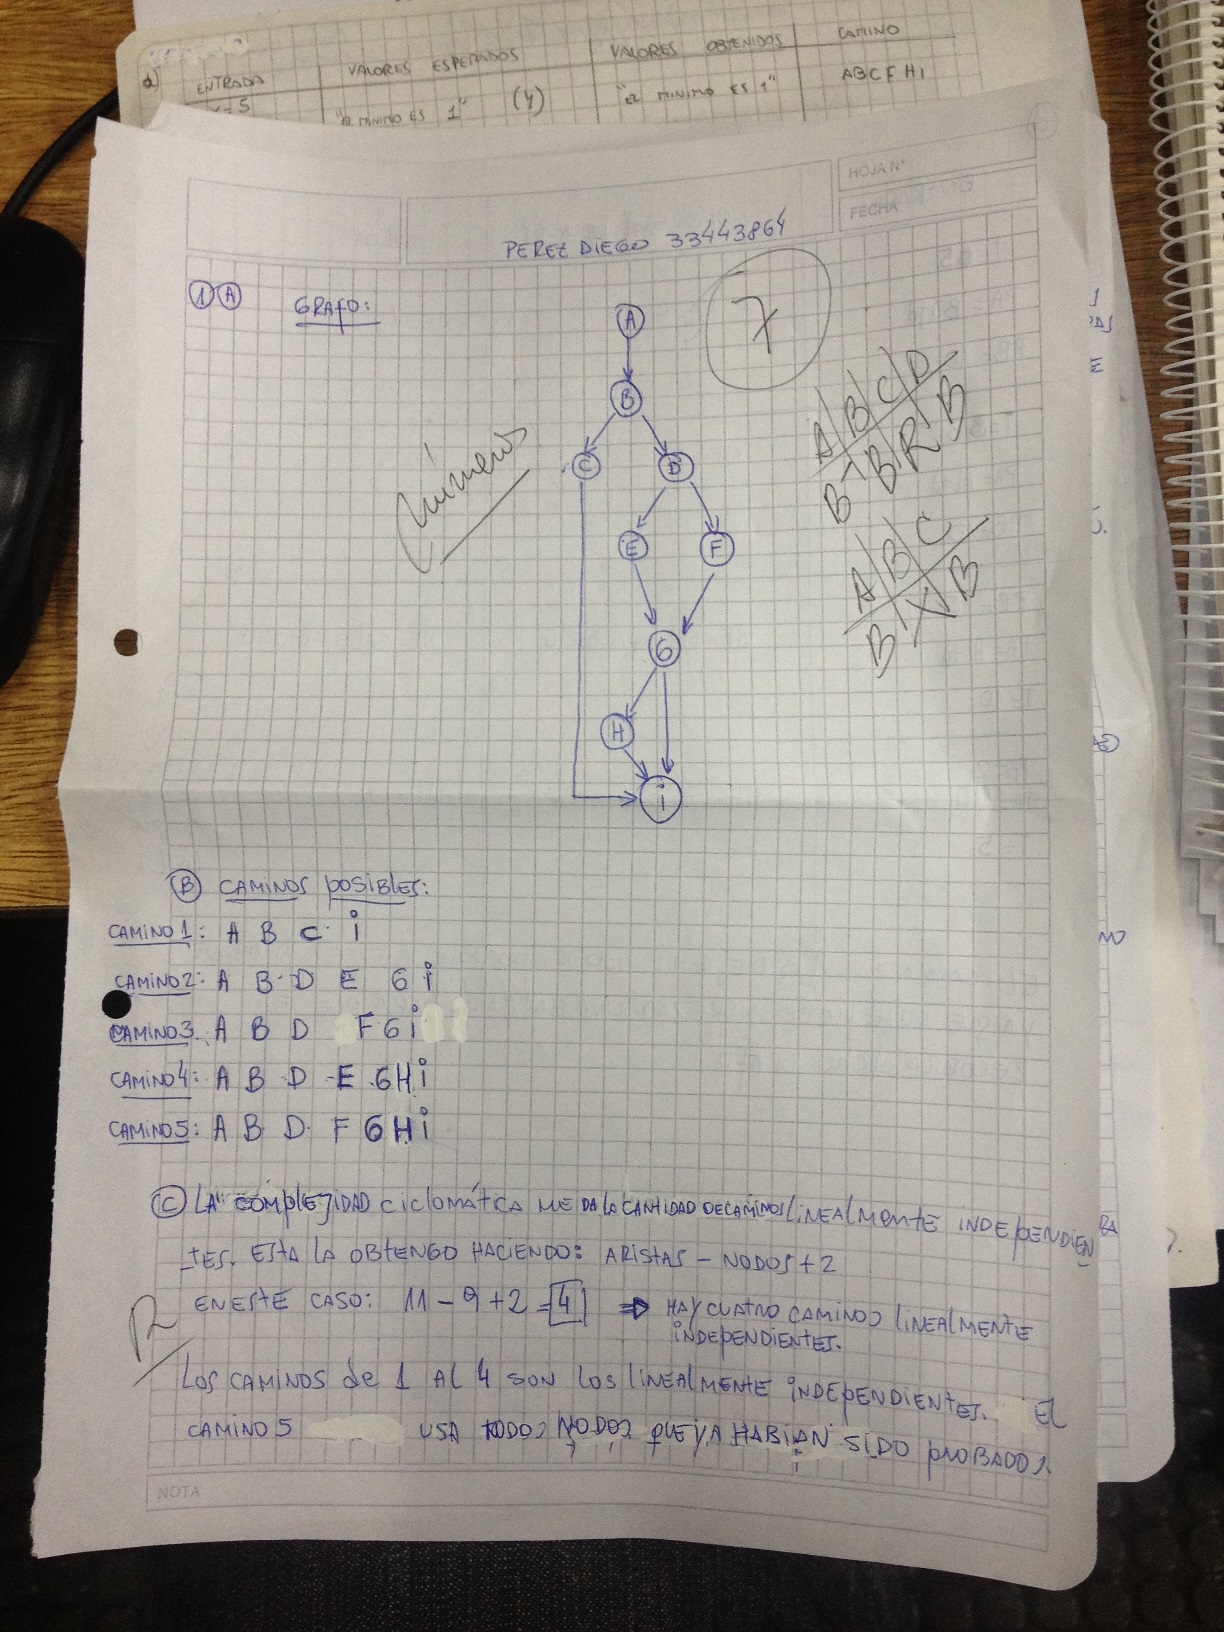 d)
ENTRADA
VALORES ESPERADOS
VALORES OBTENIDOS
CAMINO
"EL MINIMO ES 1" (4)
"EL MINIMO ES 1"
ABCFHI
HOJA N°
FECHA
PEREZ DIEGO 33443864
1 A GRAFO:
7
A
B
C D
E F
G
H
i
A B C D
B B R B
A B C
B V B
B CAMINOS POSIBLES:
CAMINO 1: A B C i
CAMINO 2: A B D E G i
CAMINO 3: A B D F G i
CAMINO 4: A B D E G H i
CAMINO 5: A B D F G H i
C LA COMPLEJIDAD CICLOMÁTICA ME DA LA CANTIDAD DE CAMINOS LINEALMENTE INDEPENDIEN
TES. ESTA LA OBTENGO HACIENDO: ARISTAS - NODOS + 2
EN ESTE CASO: 11 - 9 + 2 = 4 ⇒ HAY CUATRO CAMINOS LINEALMENTE
INDEPENDIENTES.
LOS CAMINOS de 1 AL 4 SON LOS LINEALMENTE INDEPENDIENTES. EL
CAMINO 5 USA TODOS NODOS QUE YA HABIAN SIDO PROBADOS.
NOTA